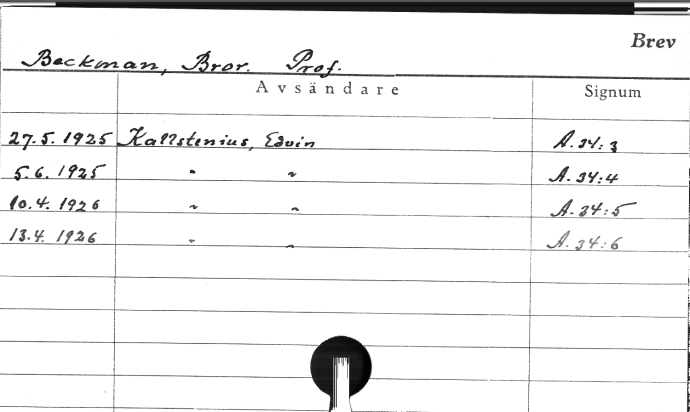 Brev
Beckman, Bror. Prof.
Avsändare Signum
27.5.1925 Kallstenius, Edvin A.34:3
5.6.1925 " " A.34:4
10.4.1926 " " A.34:5
13.4.1926 " " A.34:6